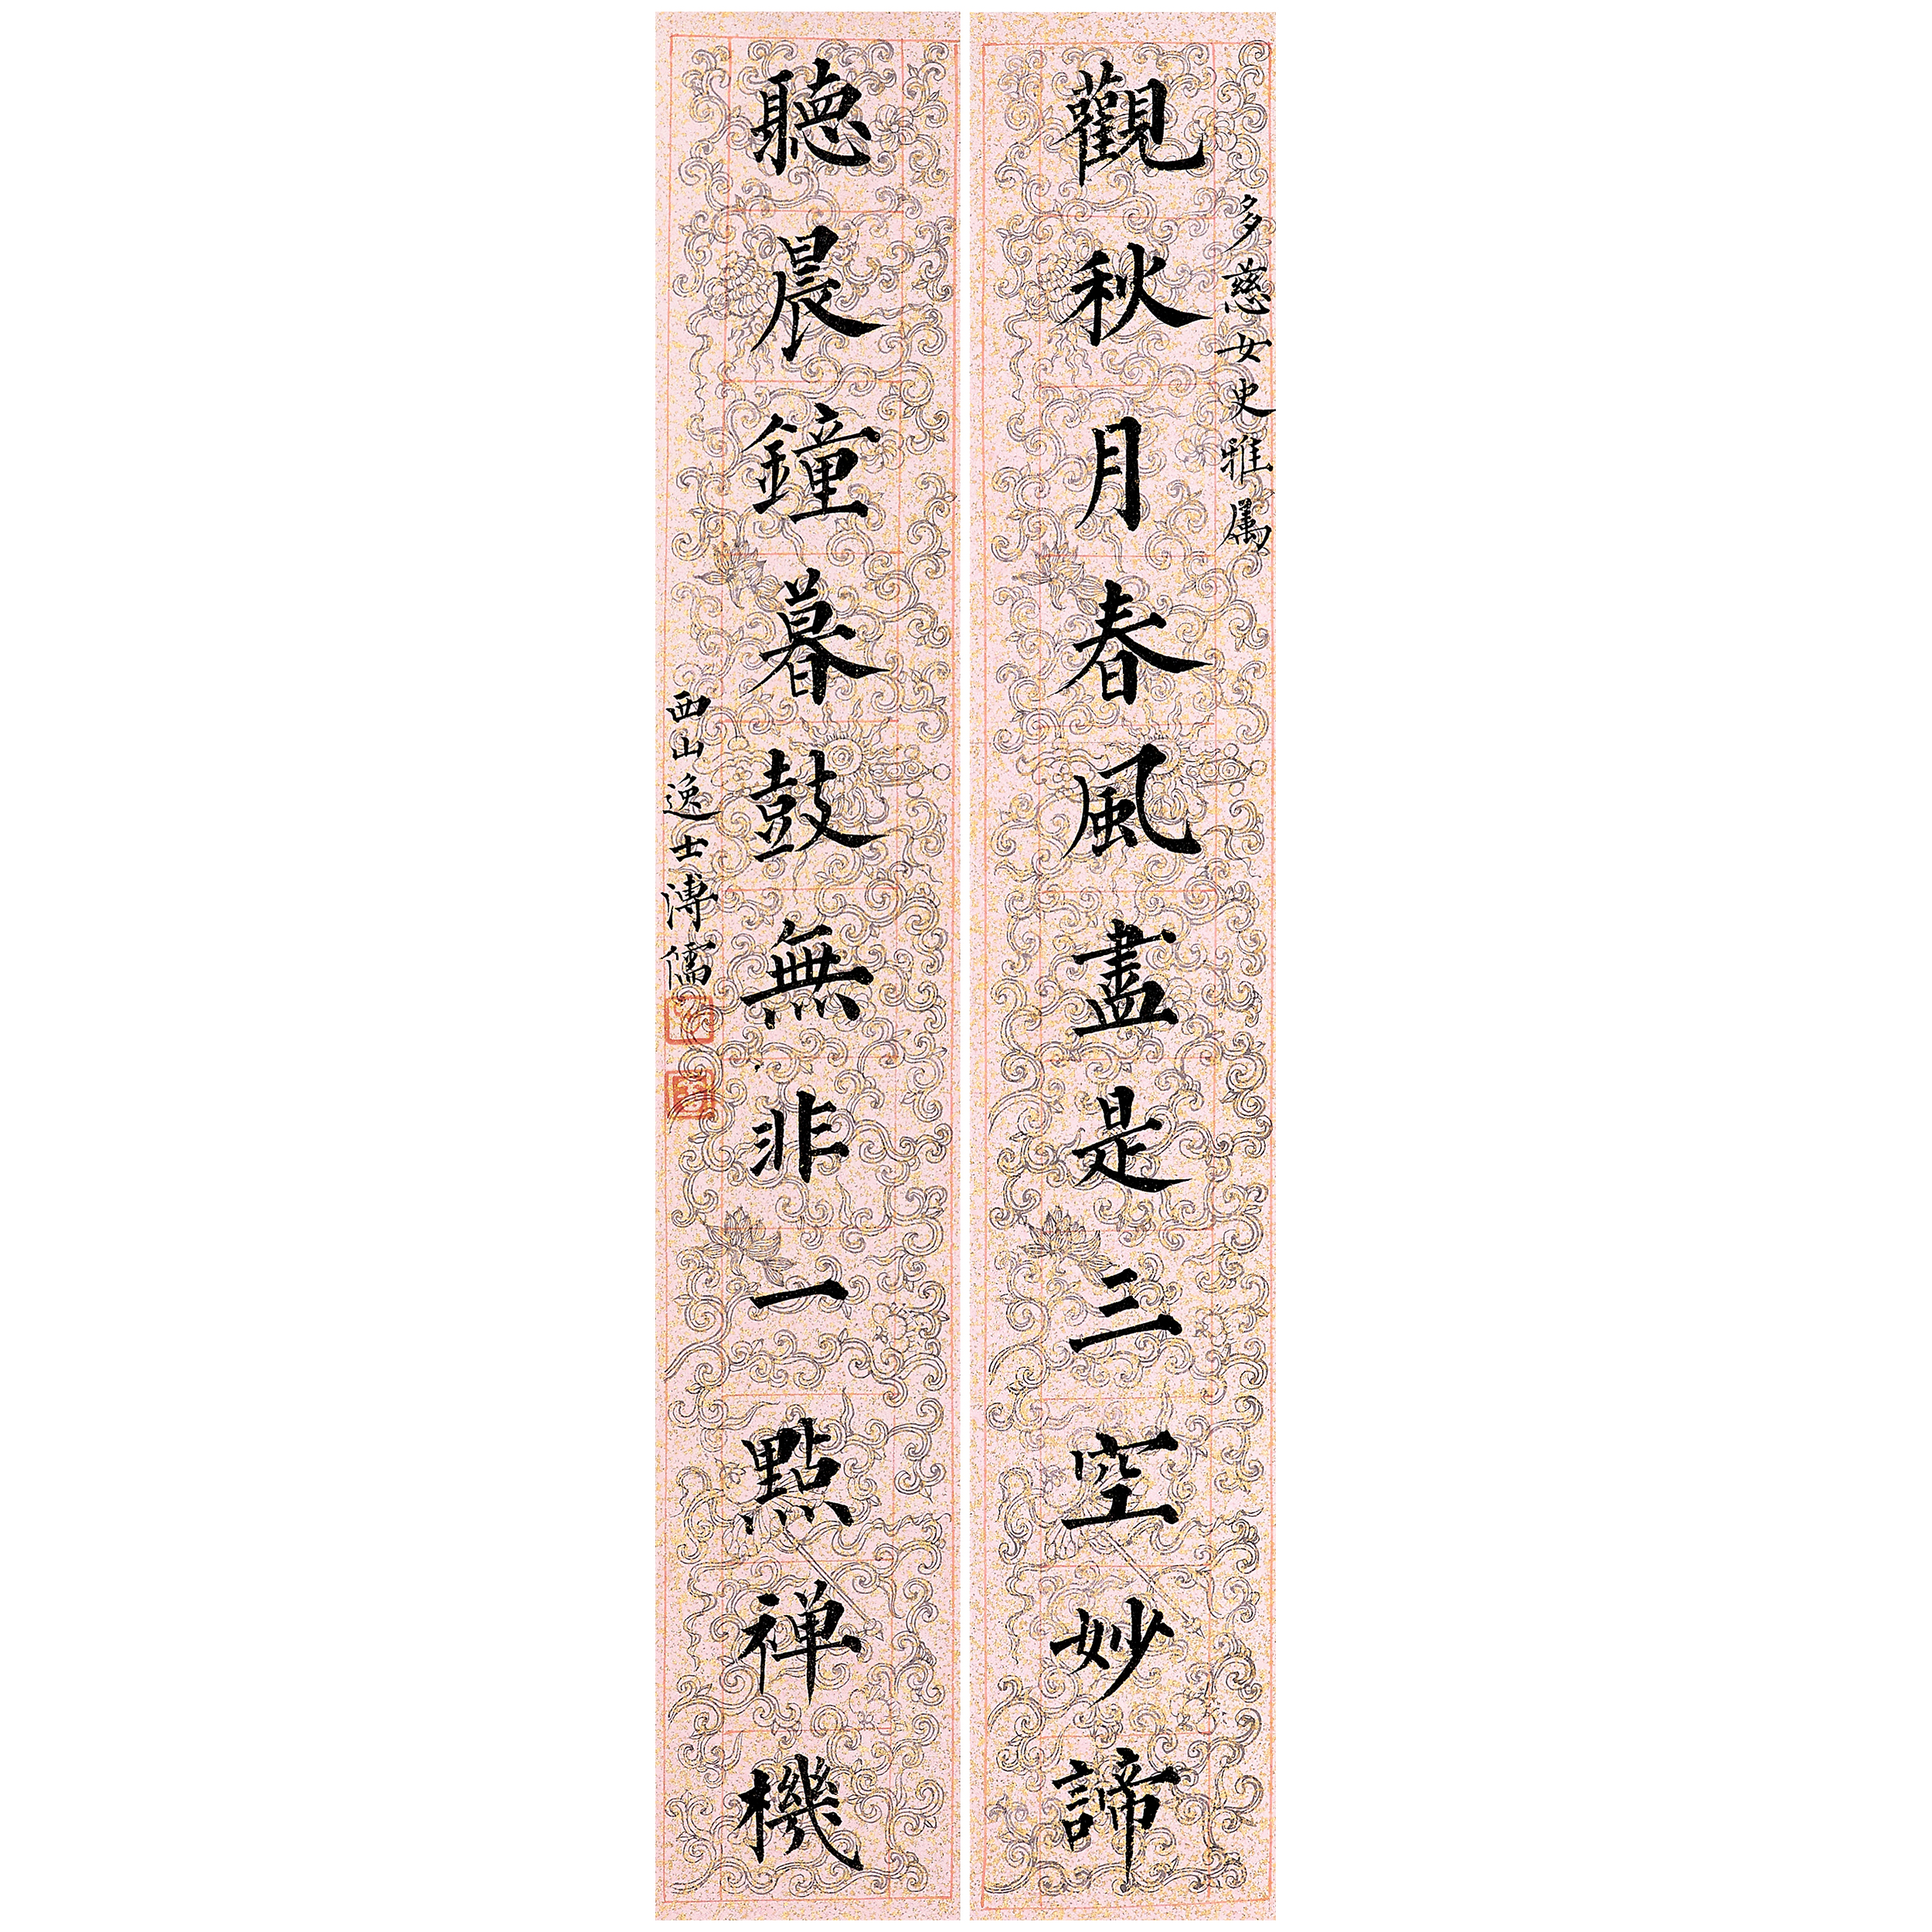 多慈女史雅属
觀秋月春風盡是三空妙諦
聽晨鐘暮鼓無非一點禅機
西山逸士溥儒